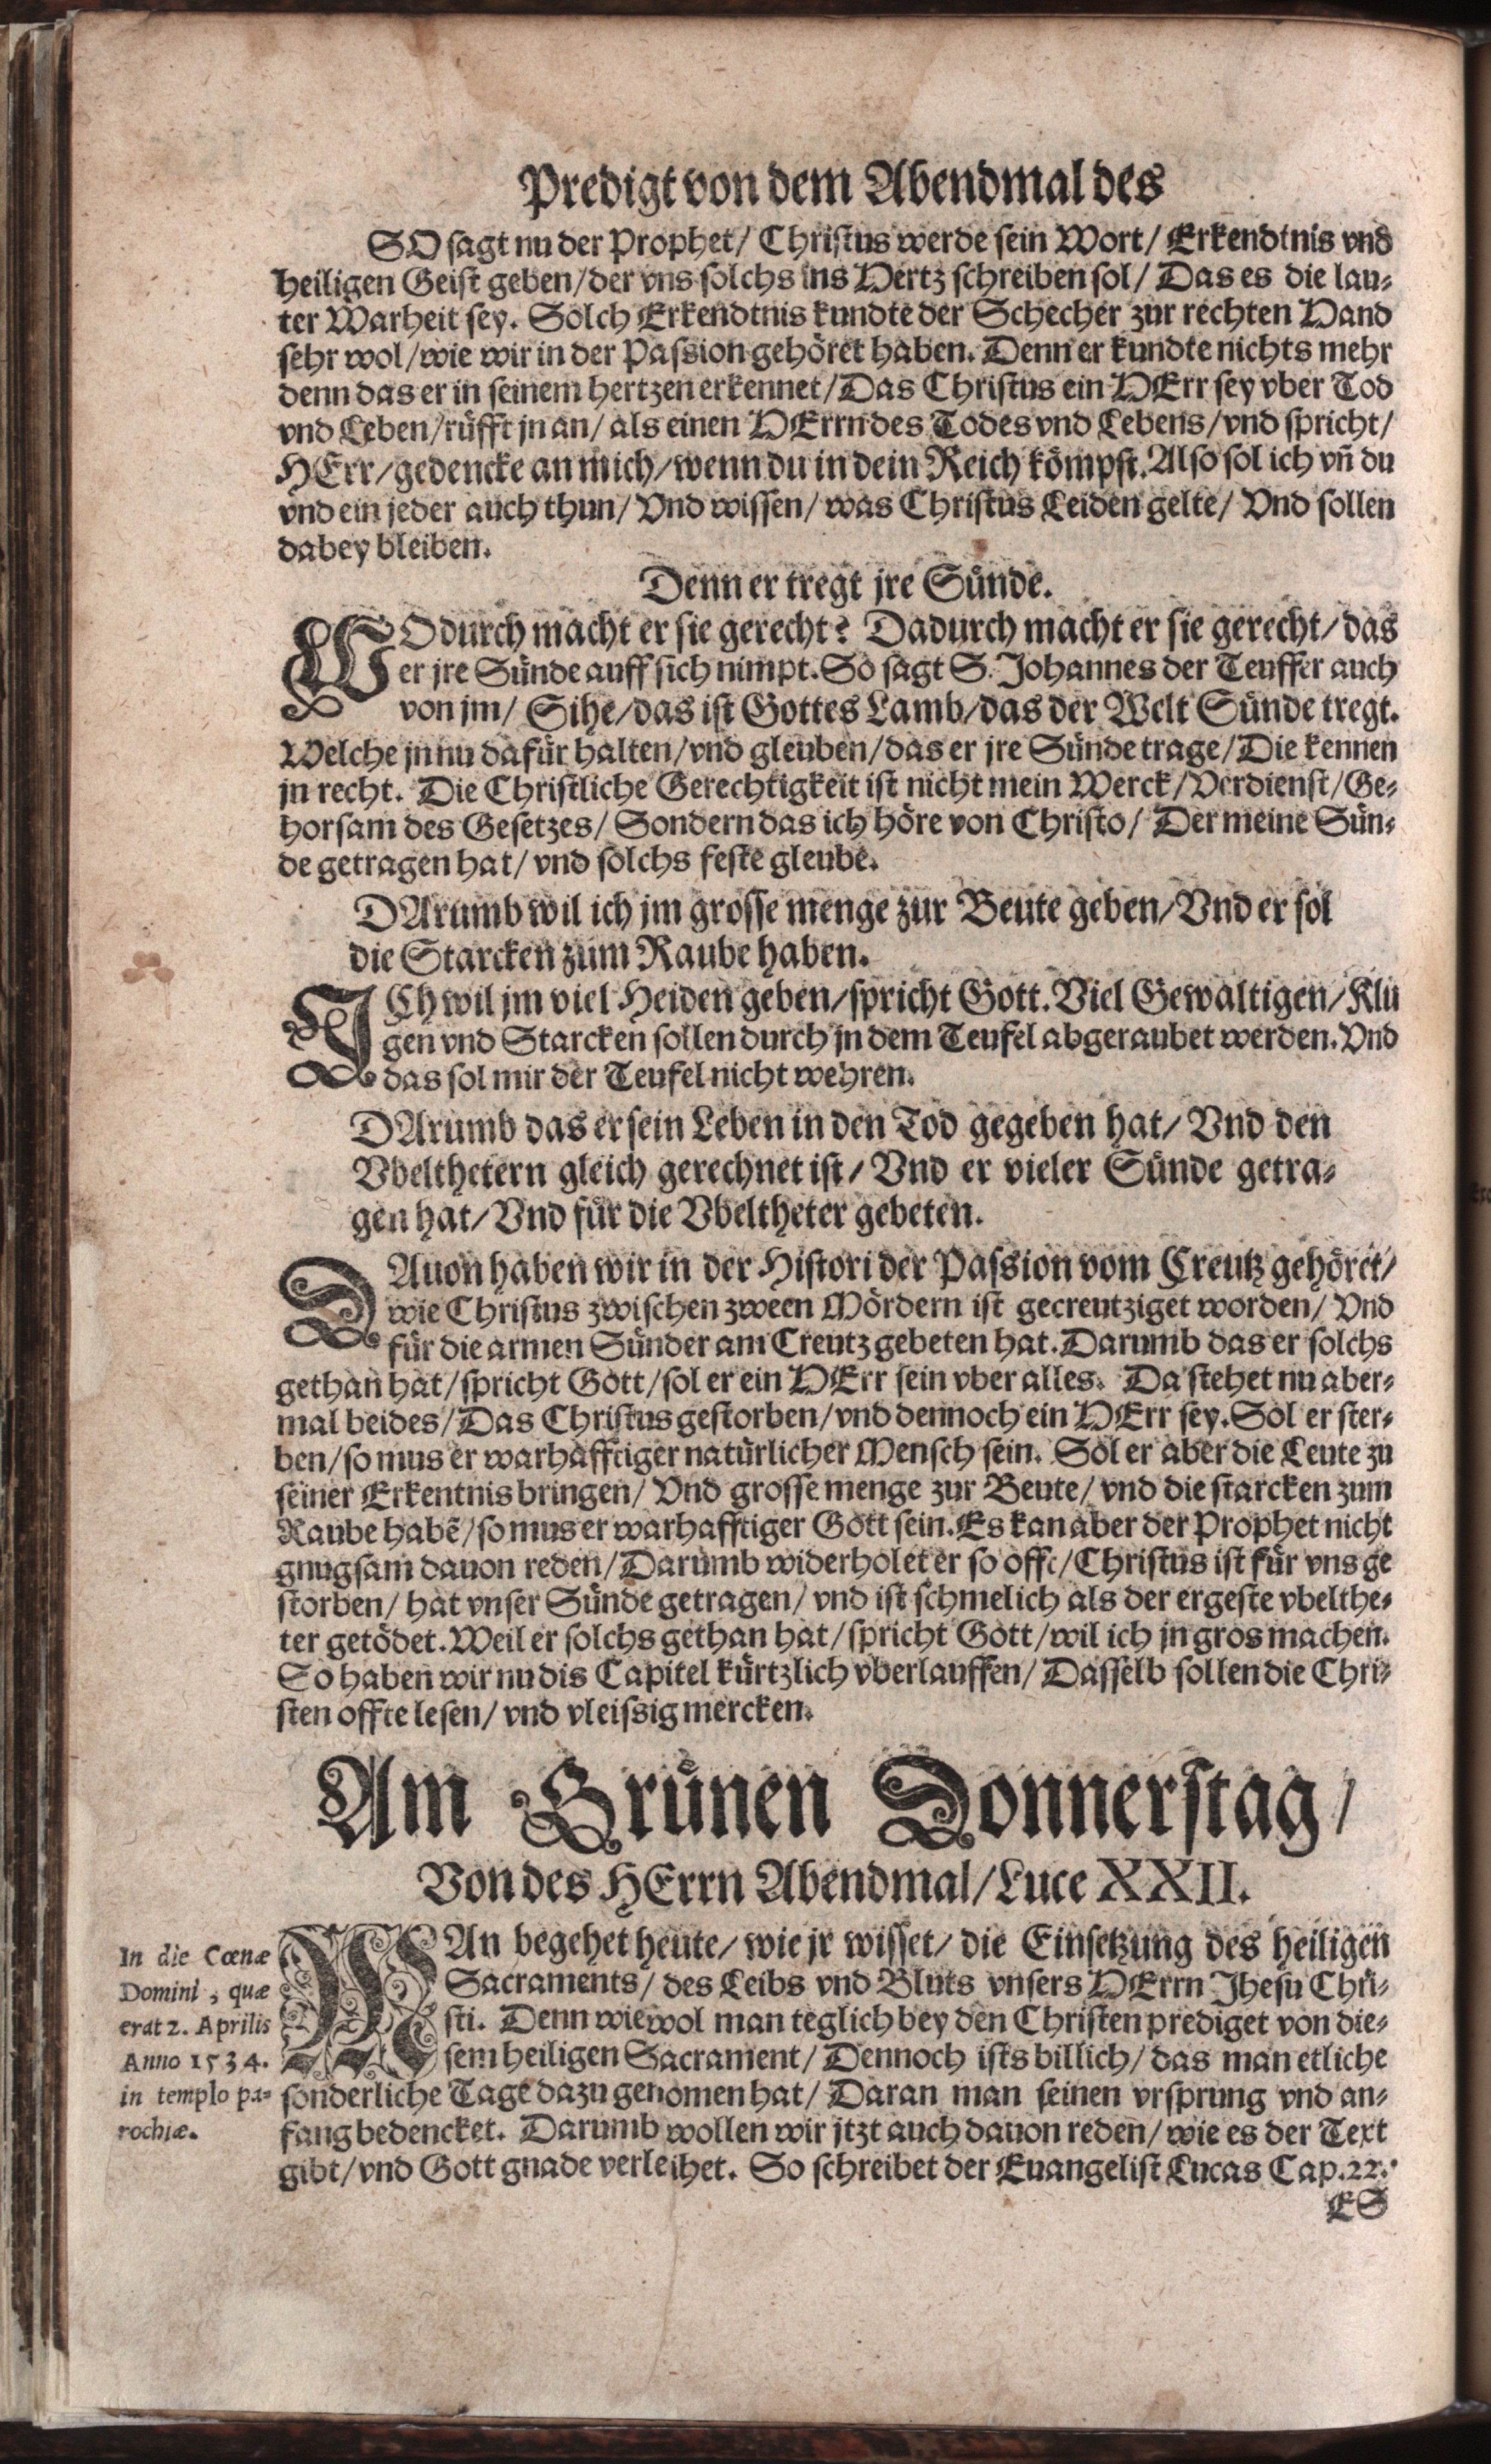 Predigt von dem Abendmal des
SO sagt nu der Prophet/ Christus werde sein Wort/ Erkendtnis vnd
heiligen Geist geben/der vns solchs ins Hertz schreiben sol/ Das es die lau-
ter Warheit sey. Solch Erkendtnis kundte der Schecher zur rechten Hand
sehr wol/wie wir in der Passion gehöret haben. Denn er kundte nichts mehr
denn das er in seinem hertzen erkennet/Das Christus ein HErr sey vber Tod
vnd Leben/rüfft jn an/ als einen HErrn des Todes vnd Lebens/vnd spricht/
HErr/gedencke an mich/wenn du in dein Reich kömpst. Also sol ich vñ du
vnd ein jeder auch thun/ Vnd wissen/ was Christus Leiden gelte/ Vnd sollen
dabey bleiben.
Denn er tregt jre Sünde.
WOdurch macht er sie gerecht? Dadurch macht er sie gerecht/das
er jre Sünde auff sich nimpt. So sagt S. Johannes der Teuffer auch
von jm/ Sihe/das ist Gottes Lamb/das der Welt Sünde tregt.
Welche jn nu dafür halten/vnd gleuben/das er jre Sünde trage/Die kennen
jn recht. Die Christliche Gerechtigkeit ist nicht mein Werck/Verdienst/Ge-
horsam des Gesetzes/ Sondern das ich höre von Christo/ Der meine Sün-
de getragen hat/ vnd solchs feste gleube.
DArumb wil ich jm grosse menge zur Beute geben/Vnd er sol
die Starcken zum Raube haben.
ICh wil jm viel Heiden geben/spricht Gott. Viel Gewaltigen/Klü
gen vnd Starcken sollen durch jn dem Teufel abgeraubet werden. Vnd
das sol mir der Teufel nicht wehren.
DArumb das er sein Leben in den Tod gegeben hat/ Vnd den
Vbelthetern gleich gerechnet ist/ Vnd er vieler Sünde getra-
gen hat/Vnd für die Vbeltheter gebeten.
DAuon haben wir in der Histori der Passion vom Creutz gehöret/
wie Christus zwischen zween Mördern ist gecreutziget worden/ Vnd
für die armen Sünder am Creutz gebeten hat. Darumb das er solchs
gethan hat/spricht Gott/sol er ein HErr sein vber alles. Da stehet nu aber-
mal beides/Das Christus gestorben/vnd dennoch ein HErr sey. Sol er ster-
ben/so mus er warhafftiger natürlicher Mensch sein. Sol er aber die Leute zu
seiner Erkentnis bringen/ Vnd grosse menge zur Beute/ vnd die starcken zum
Raube habẽ/so mus er warhafftiger Gott sein. Es kan aber der Prophet nicht
gnugsam dauon reden/Darumb widerholet er so offt/Christus ist für vns ge
storben/ hat vnser Sünde getragen/ vnd ist schmelich als der ergeste vbelthe-
ter getödet. Weil er solchs gethan hat/spricht Gott/wil ich jn gros machen.
So haben wir nu dis Capitel kürtzlich vberlauffen/ Dasselb sollen die Chri-
sten offte lesen/ vnd vleissig mercken.
Am Grünen Donnerstag/
Von des HErrn Abendmal/Luce XXII.
MAn begehet heute/ wie jr wisset/ die Einsetzung des heiligen
Sacraments/ des Leibs vnd Bluts vnsers HErrn Jhesu Chri-
sti. Denn wiewol man teglich bey den Christen prediget von die-
sem heiligen Sacrament/ Dennoch ists billich/das man etliche
sonderliche Tage dazu genomen hat/ Daran man seinen vrsprung vnd an-
fang bedencket. Darumb wollen wir jtzt auch dauon reden/ wie es der Text
gibt/vnd Gott gnade verleihet. So schreibet der Euangelist Lucas Cap. 22.
In die Cœnæ
Domini, quæ
erat 2. Aprilis
Anno 1534.
in templo pa-
rochiæ.
ES